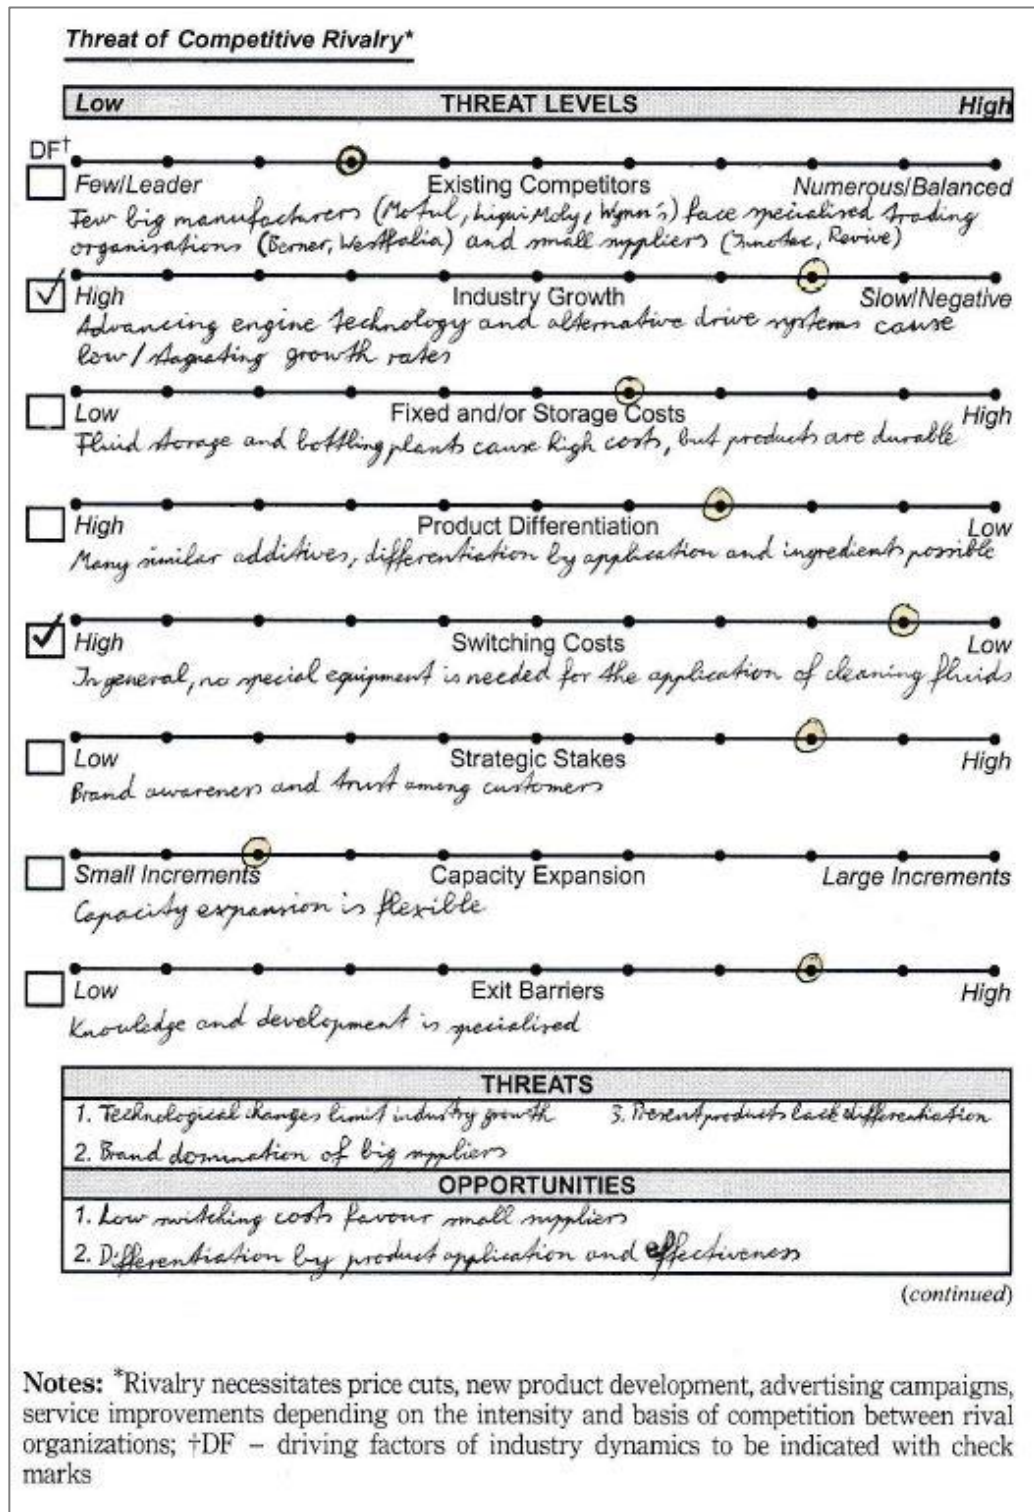 Threat of Competitive Rivalry*
Low THREAT LEVELS High
DF†
Few/Leader Existing Competitors Numerous/Balanced
Few big manufacturers (Motul, Liqui Moly, Wynn's) face specialised trading
organisations (Berner, Westfalia) and small suppliers (Innotec, Revive)
High Industry Growth Slow/Negative
Advancing engine technology and alternative drive systems cause
low/stagnating growth rates
Low Fixed and/or Storage Costs High
Fluid storage and bottling plants cause high costs, but products are durable
High Product Differentiation Low
Many similar additives, differentiation by application and ingredients possible
High Switching Costs Low
In general, no special equipment is needed for the application of cleaning fluids
Low Strategic Stakes High
Brand awareness and trust among customers
Small Increments Capacity Expansion Large Increments
Capacity expansion is flexible
Low Exit Barriers High
Knowledge and development is specialised
THREATS
1. Technological changes limit industry growth 3. Present products lack differentiation
2. Brand domination of big suppliers
OPPORTUNITIES
1. Low switching costs favour small suppliers
2. Differentiation by product application and effectiveness
(continued)
Notes: *Rivalry necessitates price cuts, new product development, advertising campaigns,
service improvements depending on the intensity and basis of competition between rival
organizations; †DF – driving factors of industry dynamics to be indicated with check
marks